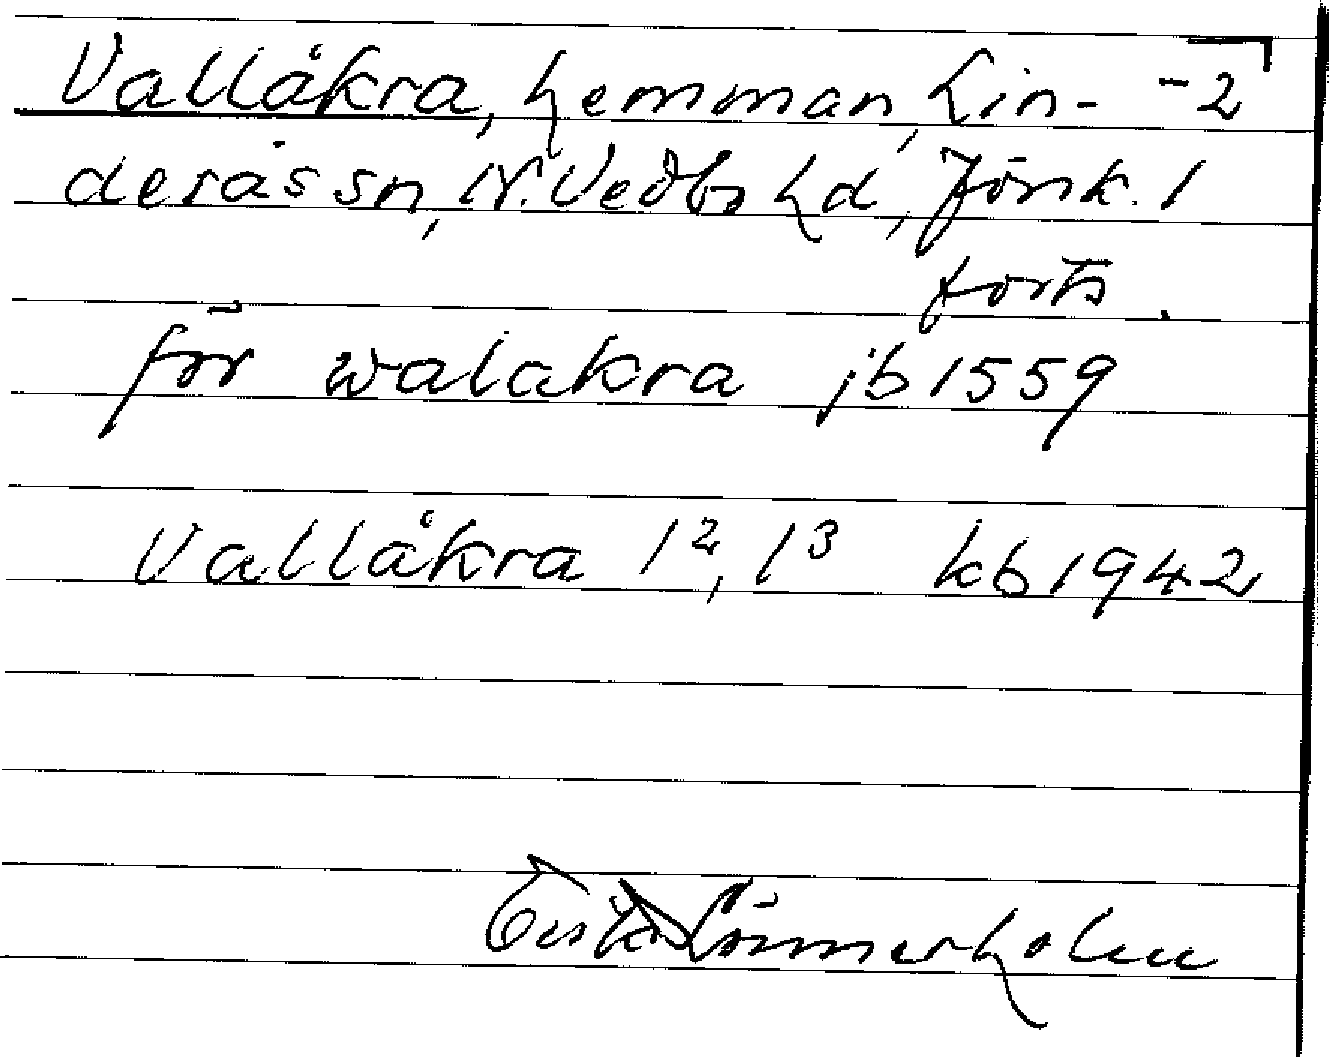 Vallåkra, hemman, Lin- -2
derås sn, N. Vedbo hd, Jönk. l
forts.
för walakra jb 1559
Vallåkra 1², 1³ kb 1942
Erik Lönnerholm